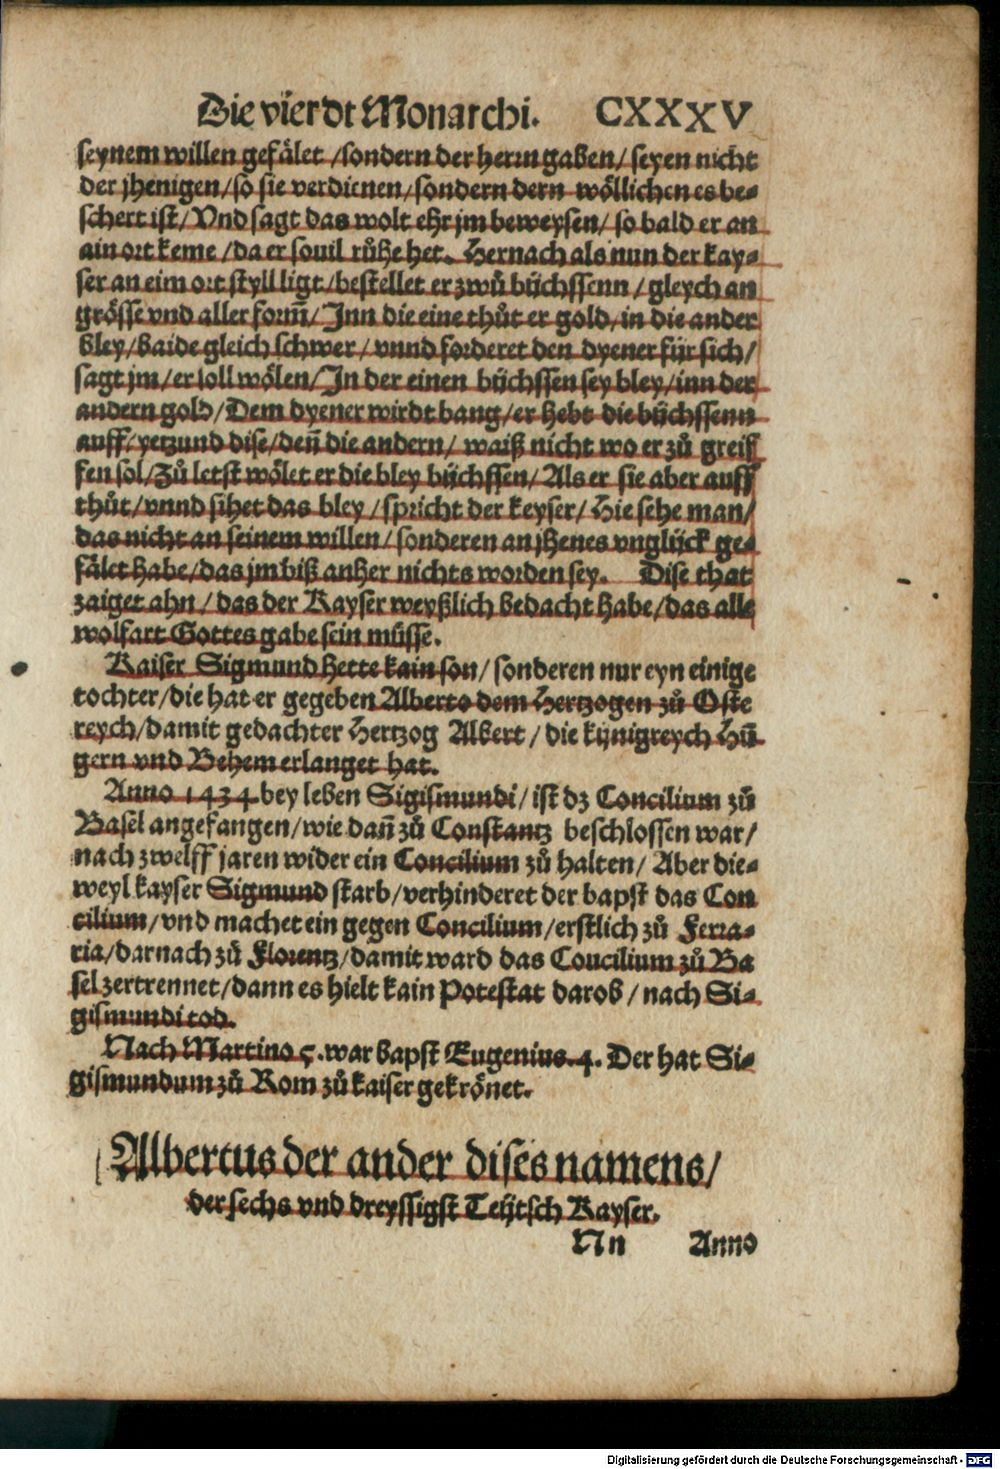 Die vierdt Monarchi. CXXXV
seynem willen gefälet / sondern der herrn gaben / seyen nicht
der jhenigen / so sie verdienen / sondern dern wöllichen es be-
schert ist / Vnd sagt das wolt ehr jm beweysen / so bald er an
ain ort keme / da er souil růhe het. Hernach als nun der kay-
ser an eim ort styll ligt / bestellet er zwů büchssenn / gleych an
grösse vnd aller form̃ / Inn die eine thůt er gold / in die ander
bley / baide gleich schwer / vnnd forderet den dyener für sich /
sagt jm / er soll wölen / In der einen büchssen sey bley / inn der
andern gold / Dem dyener wirdt bang / er hebt die büchssenn
auff / yetzund dise / deñ die andern / waiß nicht wo er zů greif
fen sol / Zů letst wölet er die bley büchssen / Als er sie aber auff
thůt / vnnd sihet das bley / spricht der keyser / Hie sehe man /
das nicht an seinem willen / sonderen an jhenes vnglück ge-
fälet habe / das jm biß anher nichts worden sey. Dise that
zaiget ahn / das der Kayser weyßlich bedacht habe / das alle
wolfart Gottes gabe sein müsse.
Kaiser Sigmund hette kain son / sonderen nur eyn einige
tochter / die hat er gegeben Alberto dem Hertzogen zů Oste
reych / damit gedachter Hertzog Albert / die künigreych Hũ
gern vnd Behem erlanget hat.
Anno 1434 bey leben Sigismundi / ist dz Concilium zů
Basel angefangen / wie dañ zů Constantz beschlossen war /
nach zwelff jaren wider ein Concilium zů halten / Aber die-
weyl kayser Sigmund starb / verhinderet der bapst das Con
cilium / vnd machet ein gegen Concilium / erstlich zů Ferra-
ria / darnach zů Florentz / damit ward das Coucilium zů Ba
sel zertrennet / dann es hielt kain Potestat darob / nach Si-
gismundi tod.
Nach Martino 5. war bapst Eugenius. 4. Der hat Si-
gismundum zů Rom zů kaiser gekrönet.
Albertus der ander dises namens /
der sechs vnd dreyssigst Teütsch Kayser.
Nn Anno
Digitalisierung gefördert durch die Deutsche Forschungsgemeinschaft - DFG